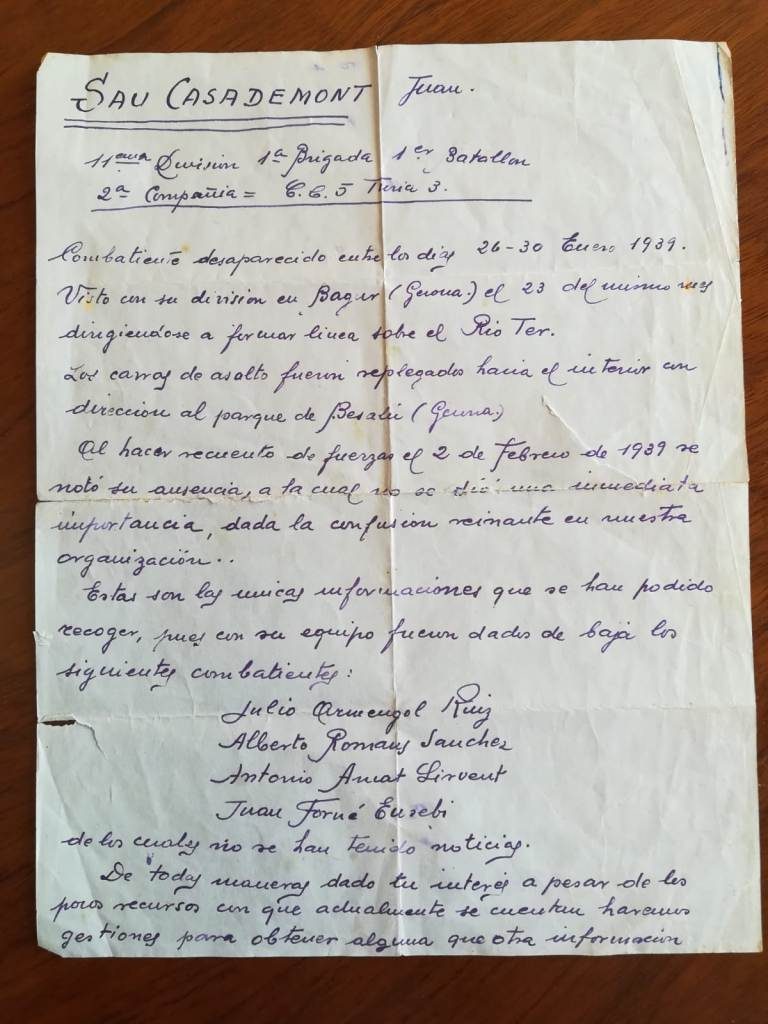 SAU CASADEMONT Juan.
11ava Division 1ª Brigada 1er Batallon
2ª Compañia = C.C.5 Turia 3.
Combatiente desaparecido entre los dias 26-30 Enero 1939.
Visto con su division en Bagur (Gerona.) el 23 del mismo mes
dirigiendose a formar linea sobre el Rio Ter.
Los carros de asalto fueron replegados hacia el interior con
dirección al parque de Besalú (Gerona.)
Al hacer recuento de fuerzas el 2 de Febrero de 1939 se
notó su ausencia, a la cual no se dió una inmediata
importancia, dada la confusion reinante en nuestra
organización..
Estas son las unicas informaciones que se han podido
recoger, pues con su equipo fueron dados de baja los
siguientes combatientes:
Julio Armengol Ruiz
Alberto Romans Sanchez
Antonio Amat Sirvent
Juan Forné Eusebi
de los cuales no se han tenido noticias.
De todas maneras dado tu interés a pesar de los
pocos recursos con que actualmente se cuentan haremos
gestiones para obtener alguna que otra información